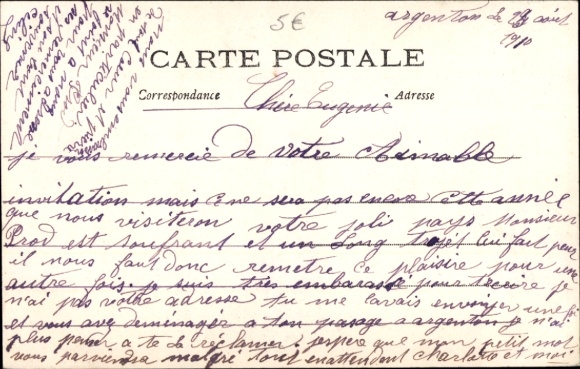 5€
argenton le 29 août
1910
CARTE POSTALE
Correspondance
Adresse
Chère Eugenie
je vous remercie de votre Aimable
invitation mais ce ne sera pas encore cette année
que nous visiteron votre joli pays Monsieur
Prod est soufrant et un long trajet lui fait peur
il nous faut donc remetre ce plaisire pour une
autre fois. je suis très embarassé pour tecrire je
n'ai pas votre adresse tu me l'avais envoyer une fois
et vous avez deménager a ton pasage a argenton je n'ai
plus penser a te la réclamer. j'espère que mon petit mot
vous parviendra malgré tout en attendent Charlotte et moi
nous vous
de tout cœur et